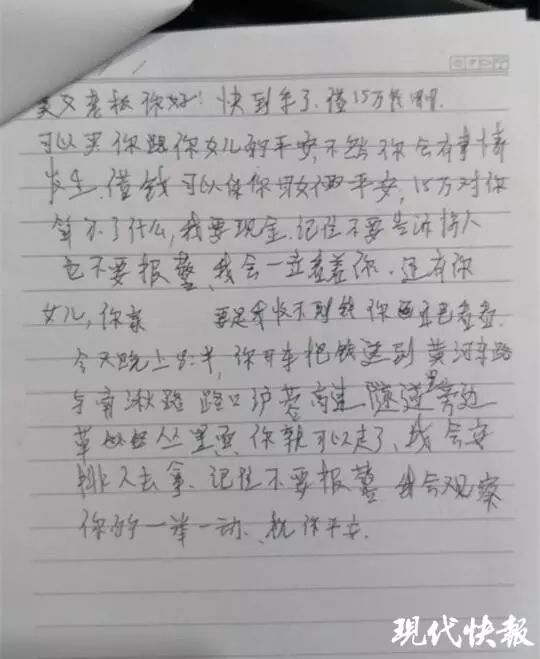 老板你好！快到年了，借15万
可以买你跟你女儿的平安，不然你会有事情
发生，借钱可以保你母女俩平安，15万对你
算不了什么，我要现金，记住不要告诉
也不要报警，我会一直看着你，还有你
女儿，你家 要是我收不到钱你
今天晚上 你开车把钱送到黄河东路
与 路 路口沪蓉高速隧道旁边
草 丛里面 你就可以走了，我会安
排人去拿，记住不要报警 我会观察
你的一举一动，祝你平安。
现代快報